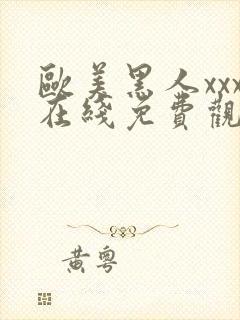 歐美黑人xxx
在綫免費觀
黃粵